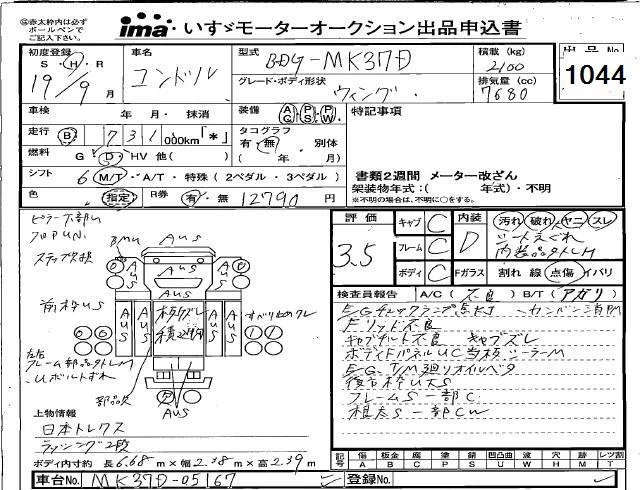 ㊟赤太枠内は必ず
ボールペンで
ご記入下さい。
ima いすゞモーターオークション出品申込書
初度登録 車名 型式 積載 (kg) 出品No
S・H・R コンドル BDG-MK37D 2100 1044
19/9 月 グレード・ボディ形状 排気量 (cc)
ウィング 7680
車検 年 月・抹消 装備 AC PS PW 特記事項
走行 B 731 000km「*」 タコグラフ
有・無 別体
燃料 G D HV 他( ) ( 年 月)
シフト 6 M/T・A/T・特殊(2ペダル・3ペダル) 書類2週間 メーター改ざん
架装物年式:( 年式)・不明
色 指定 R券 有・無 12790 円 ※不明の場合は、不明に○をする。
評価 キャブ C 内装 汚れ 破れ ヤニ スレ
3.5 フレーム C D シートえぐれ
ボディ C Fガラス 割れ 線 点傷 イバリ
検査員報告 A/C(不良) B/T(アガリ)
E/Gチェックランプ点灯
Fリッド不良
キャブチルト不良 キャブズレ
ボディFパネルUC当板シーラーM
E/G T/M廻りオイルベタ
後古枠UAS
フレームS一部C
根太S一部CW
ステップ欠損
BMU AUS
AUS
AUS
前枠US
AUS
AUS
AUS
AUS
左右
フレーム部品タトレM
Uボルトずれ
部品欠
AUS
上物情報
日本トレクス
ラッシング2段
ボディ内寸約 長6.68m×幅2.38m×高2.39m
記号 傷 板金 腐 塗 錆 凹凸曲 波 穴 跡 レツ割
A B C P S U W H M T
車台No. MK37D-05167 登録No.